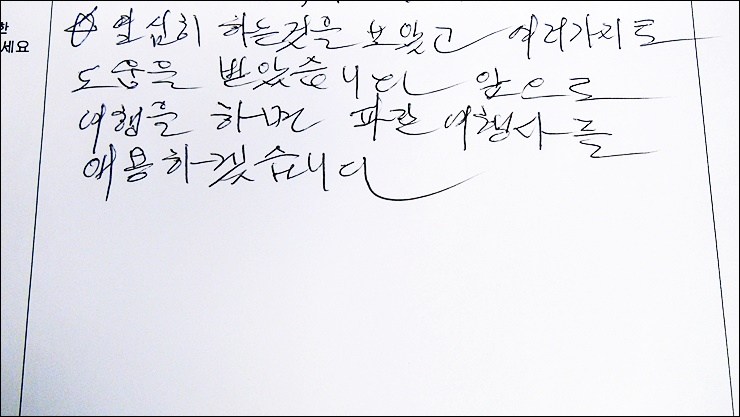 한
세요
열심히 하는것을 보았고 여러가지로
도움을 받았습니다 앞으로
여행을 하면 파란 여행사를
애용하겠습니다